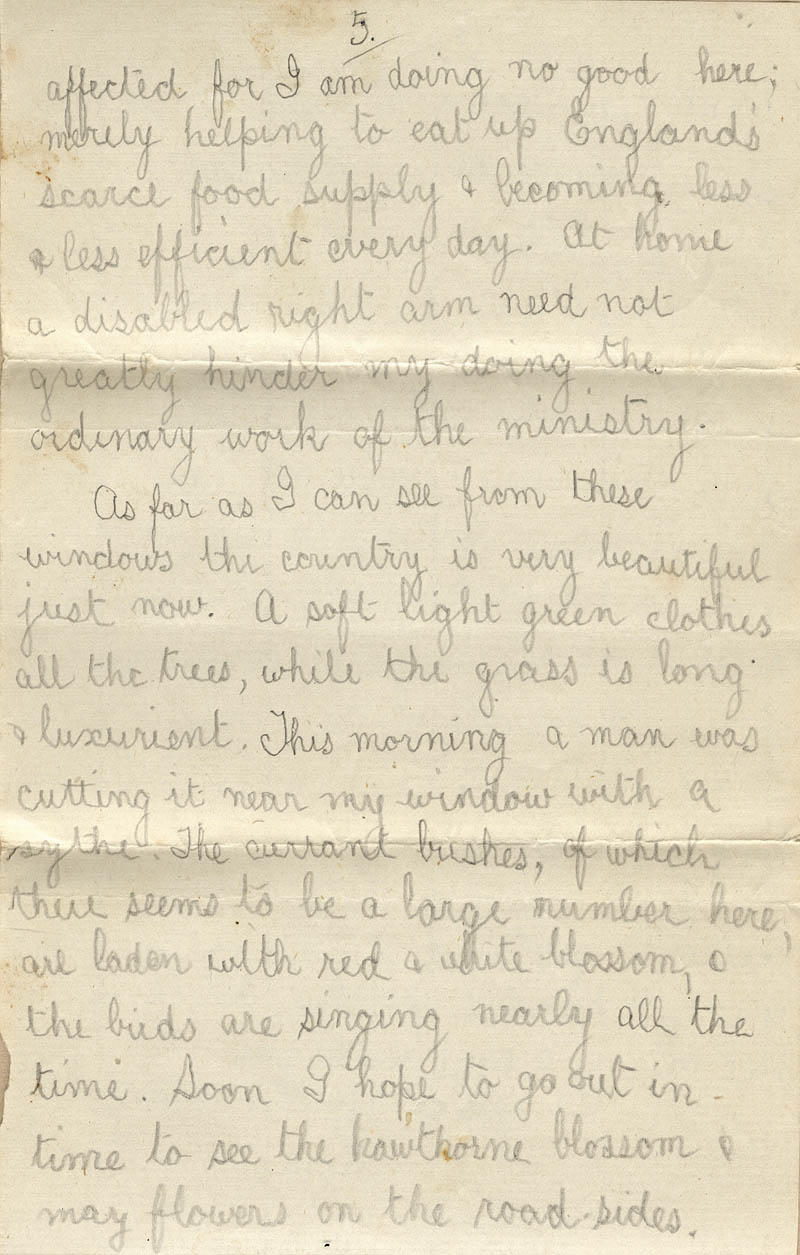 5.
affected for I am doing no good here;
merely helping to eat up England's
scarce food supply & becoming less
& less efficient every day. At home
a disabled right arm need not
greatly hinder my doing the
ordinary work of the ministry.
As far as I can see from these
windows the country is very beautiful
just now. A soft light green clothes
all the trees, while the grass is long
& luxurient. This morning a man was
cutting it near my window with a
sythe. The currant bushes, of which
there seems to be a large number here,
are laden with red & white blossom, &
the birds are singing nearly all the
time. Soon I hope to go out in
time to see the hawthorne blossom &
may flowers on the road-sides.